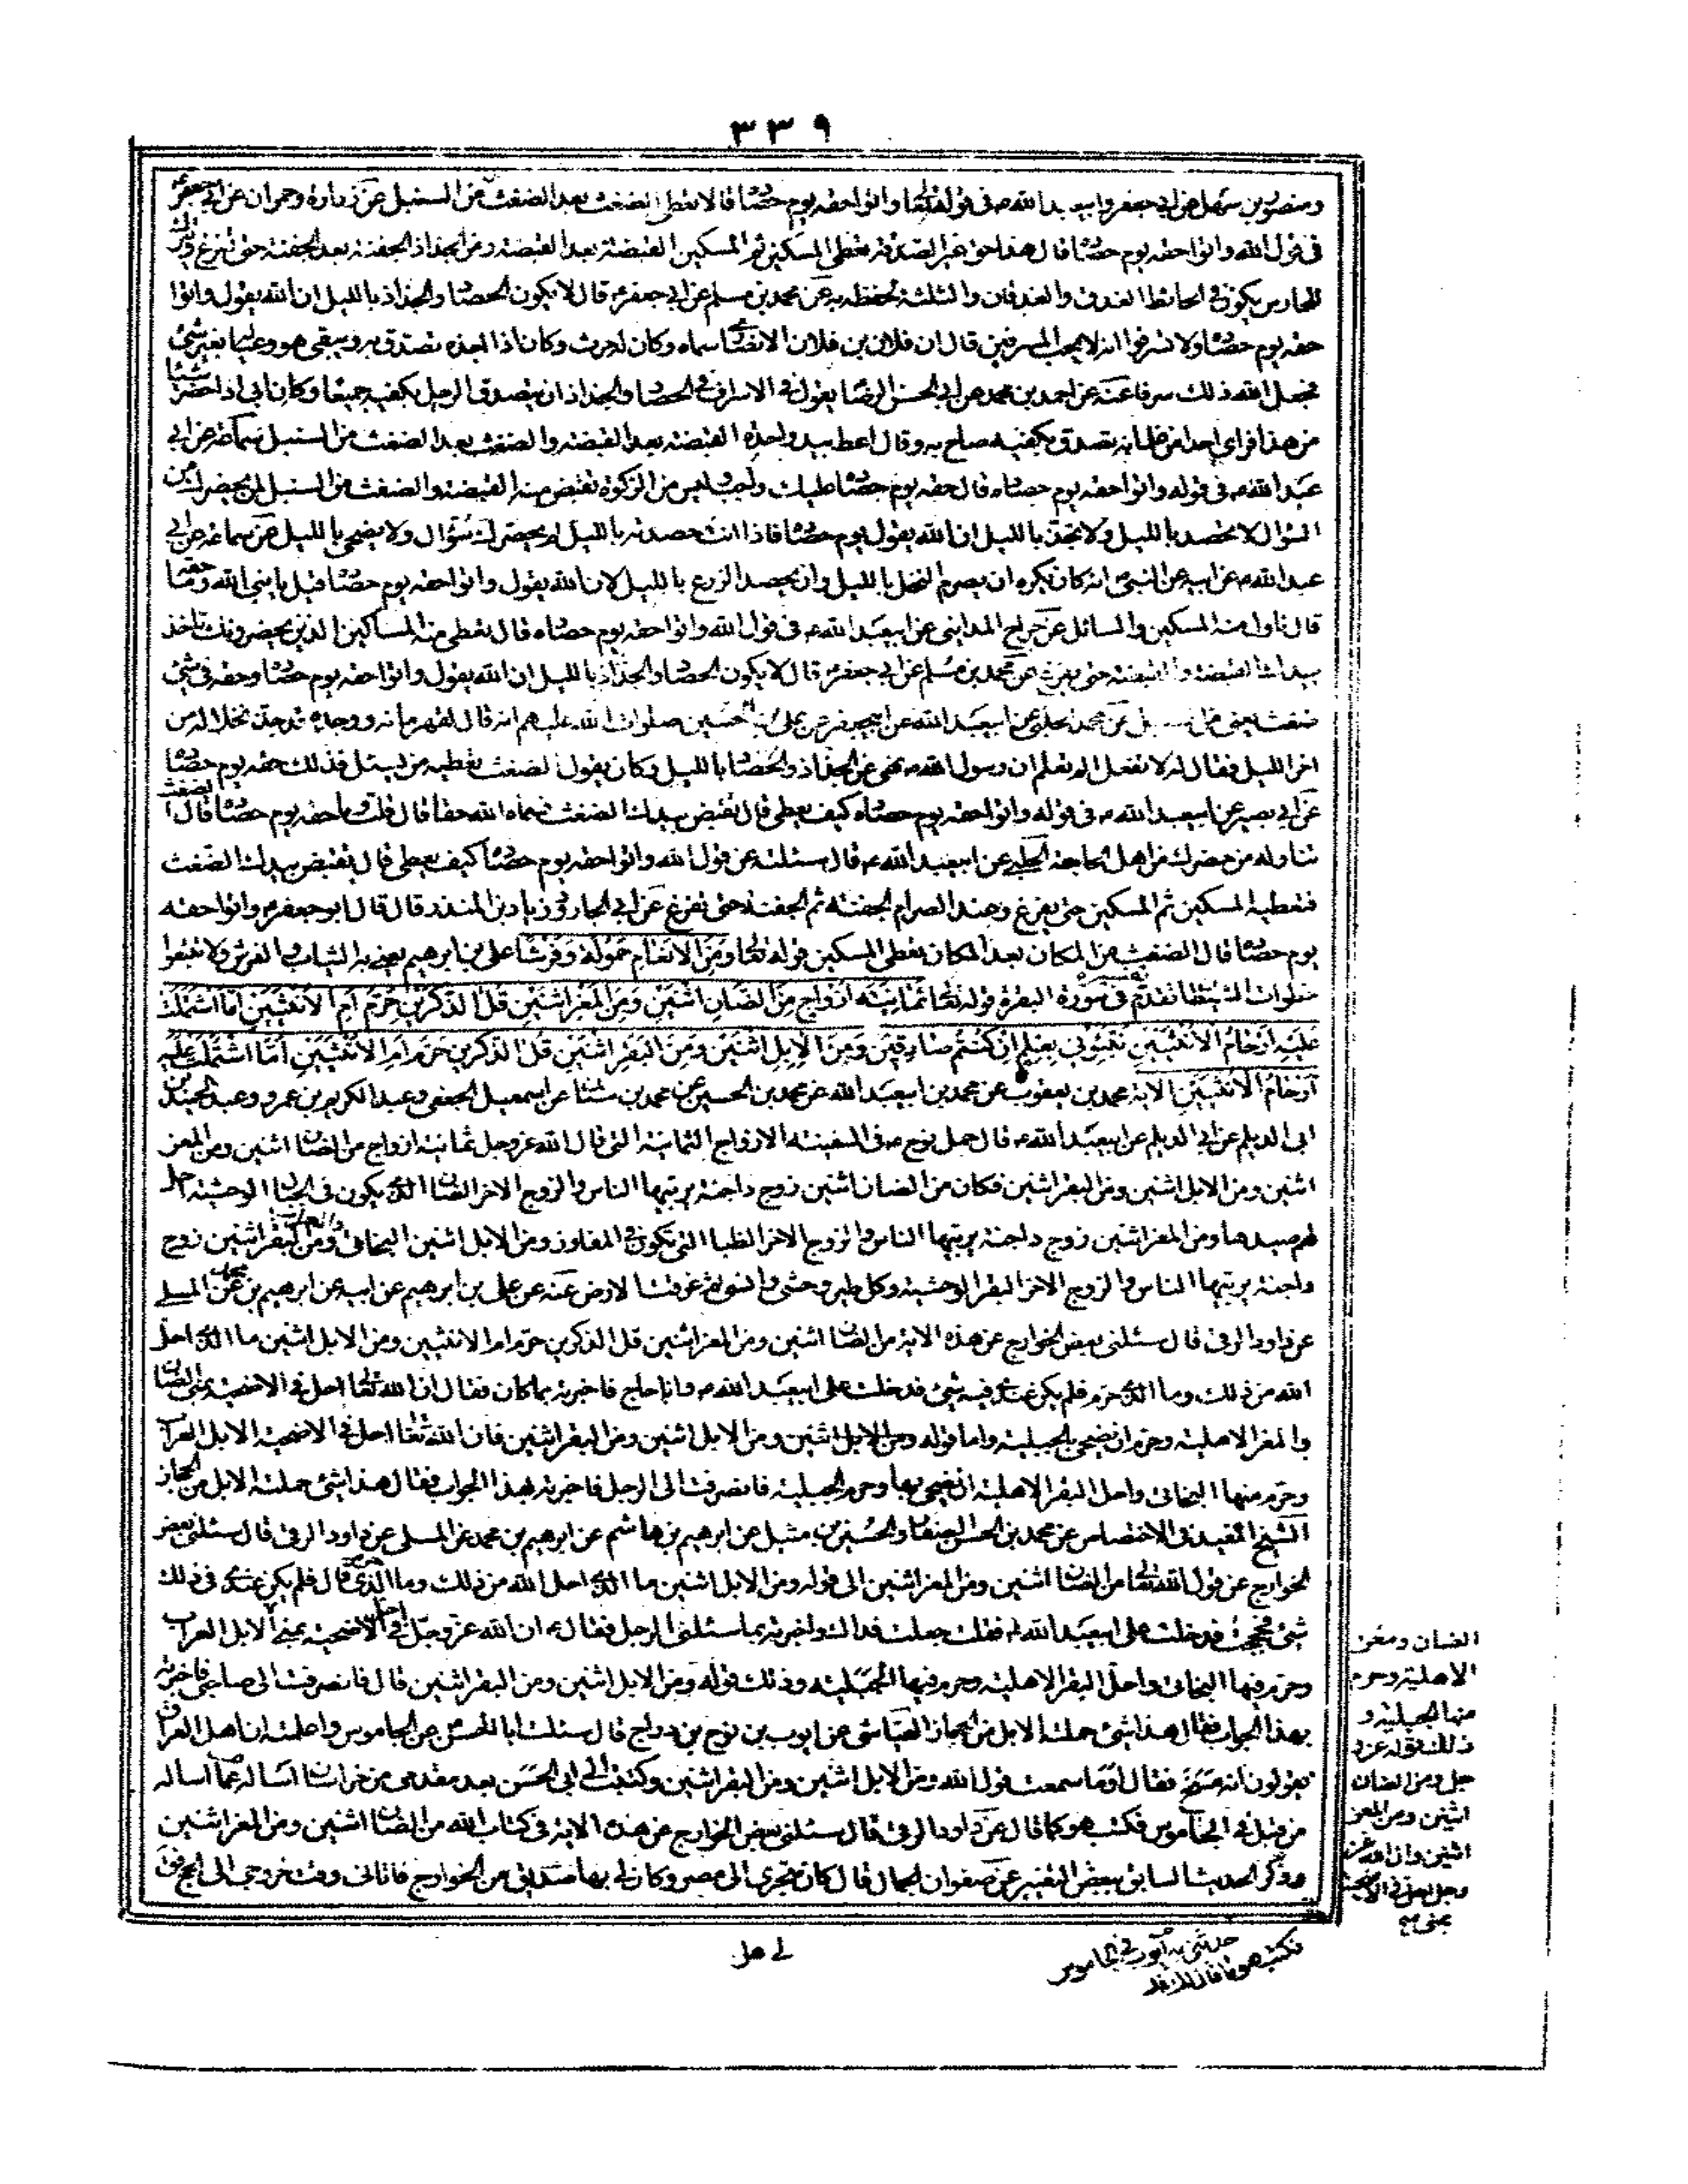 ٣٣٩
في قول الله واتوا حقه يوم حصاده قال هذا حق غير الصدقة يعطى المسكين ثم المسكين القبضة بعد القبضة ومن الجذاذ الجفنة بعد الجفنة حتى تفرغ
للحارس يكون في الحائط العذق والعذقان والثلثة لحفظه به عن محمد بن مسلم عن ابي جعفر قال لا يكون الحصاد والجذاذ بالليل ان الله يقول واتوا
حقه يوم حصاده ولا تسرفوا انه لا يحب المسرفين قال ان فلان بن فلان الانصاري سماه وكان له حرث وكان اذا اجذه تصدق به ويبقى هو وعياله بغير شئ
فجعل الله ذلك سرفا عنه عن احمد بن محمد عن ابي الحسن الرضا يقول في الاسراف في الحصاد والجذاذ ان يتصدق الرجل بكفيه جميعا وكان ابي اذا حضر شيئا
من هذا فراى احدا من غلمانه تصدق بكفيه صاح به وقال اعط بيد واحدة القبضة بعد القبضة والضغث بعد الضغث من السنبل سماعة عن ابي
عبد الله في قوله واتوا حقه يوم حصاده قال حقه يوم حصاده عليك واجب ليس من الزكوة تقبض منه القبضة والضغث من السنبل لمن يحضرك من
السؤال لا تحصد بالليل ولا تجذ بالليل ان الله يقول يوم حصاده فاذا انت حصدته بالليل لم يحضرك سؤال ولا يضحى بالليل عن سماعة عن ابي
عبد الله عن ابيه عن النبي انه كان يكره ان يصرم النخل بالليل وان يحصد الزرع بالليل لان الله يقول واتوا حقه يوم حصاده قيل يا نبي الله وما حقه
قال ناول منه المسكين والسائل عن جراح المدايني عن ابيعبد الله في قول الله واتوا حقه يوم حصاده قال تعطى منه المساكين الذين يحضرونك تاخذ
بيدك القبضة والقبضة حتى يفرغ عن محمد بن مسلم عن ابي جعفر قال لا يكون الحصاد والجذاذ بالليل ان الله يقول واتوا حقه يوم حصاده وحقه في شئ
ضغث يعنى من السنبل عن محمد الحلبي عن ابيعبد الله عن ابيجعفر عن علي بن الحسين صلوات الله عليهم انه قال لقهرمانه ووجده قد جذ نخلا له من
اخر الليل فقال له لا تفعل الم تعلم ان رسول الله نهى عن الجذاذ والحصاد بالليل وكان يقول الضغث تعطيه من يسئل فذلك حقه يوم حصاده
عن ابي بصير عن ابيعبد الله في قوله واتوا حقه يوم حصاده كيف يعطى قال تقبض بيدك الضغث فسماه الله حقا قال قلت وما حقه يوم حصاده قال الضغث
تناوله من حضرك من اهل الحاجة الحلبي عن ابيعبد الله قال سئلته عن قول الله واتوا حقه يوم حصاده كيف يعطى قال تقبض بيدك الضغث
فتعطيه المسكين ثم المسكين حتى يفرغ وعند الصرام الجفنة ثم الجفنة حتى تفرغ عن ابي الجارود زياد بن المنذر قال قال ابو جعفر واتوا حقه
يوم حصاده قال الضغث من المكان بعد المكان يعطى المسكين قوله تعالى ومن الانعام حمولة وفرشا على بن ابرهيم يعني به الثياب والفرش ولا تتبعوا
خطوات الشيطان تقدم في سورة البقرة قوله تعالى ثمانية ازواج من الضان اثنين ومن المعز اثنين قل آلذكرين حرم ام الانثيين اما اشتملت
عليه ارحام الانثيين نبئوني بعلم ان كنتم صادقين ومن الابل اثنين ومن البقر اثنين قل آلذكرين حرم ام الانثيين اما اشتملت عليه
ارحام الانثيين الاية محمد بن يعقوب عن محمد بن ابيعبد الله عن محمد بن الحسين عن محمد بن سنان عن اسمعيل الجعفي وعبد الكريم بن عمرو وعبد الحميد بن
ابى الديلم عن ابي عبد الله قال حمل نوح في السفينة الازواج الثمانية التى قال الله عز وجل ثمانية ازواج من الضان اثنين ومن المعز
اثنين ومن الابل اثنين ومن البقر اثنين فكان من الضان اثنين زوج داجنة يربيها الناس والزوج الاخر الضان التي يكون فى الجبال الوحشية احل
لهم صيدها ومن المعز اثنين زوج داجنة يربيها الناس والزوج الاخر الظبا التى تكون في المفاوز ومن الابل اثنين البخاتى والعراب ومن البقر اثنين زوج
داجنة يربيها الناس والزوج الاخر البقر الوحشية وكل طير وحشى وانسى ثم غرقت الارض عنه عن على بن ابرهيم عن ابيه عن ابرهيم بن محمد عن السلمى
عن داود الرقى قال سئلنى بعض الخوارج عن هذه الاية من الضان اثنين ومن المعز اثنين قل آلذكرين حرم ام الانثيين ومن الابل اثنين ما الذى احل
الله من ذلك وما الذى حرم فلم يكن عندى فيه شئ فدخلت على ابيعبد الله وانا حاج فاخبرته بما كان فقال ان الله تعالى احل في الاضحية بمنى الضان
والمعز الاهلية وحرم ان يضحى بالجبلية واما قوله ومن الابل اثنين ومن البقر اثنين فان الله تعالى احل في الاضحية الابل العراب
وحرم منها البخاتى واحل البقر الاهلية ان يضحى بها وحرم الجبلية فانصرفت الى الرجل فاخبرته بهذا الجواب فقال هذا شئ حملته الابل من الحجاز
الشيخ المفيد فى الاختصاص عن محمد بن الحسن الصفار والحسن بن متيل عن ابرهيم بن هاشم عن ابرهيم بن محمد عن السلمى عن داود الرقى قال سئلنى بعض
الخوارج عن قول الله تعالى من الضان اثنين ومن المعز اثنين الى قوله ومن الابل اثنين ما الذى احل الله من ذلك وما الذى حرم قال فلم يكن عندى فى ذلك
شئ فحججت فدخلت على ابيعبد الله فقلت جعلت فداك واخبرته بما سئلنى الرجل فقال ان الله عز وجل احل في الاضحية بمنى الابل العراب
وحرم فيها البخاتى واحل البقر الاهلية وحرم فيها الجبلية وذلك قوله ومن الابل اثنين ومن البقر اثنين قال فانصرفت الى صاحبي فاخبرته
بهذا الجواب فقال هذا شئ حملته الابل من الحجاز العياشى عن ايوب بن نوح بن دراج قال سئلت ابا الحسن عن الجاموس واعلمته ان اهل العراق
يقولون انه مسخ فقال اوما سمعت قول الله ومن الابل اثنين ومن البقر اثنين وكتبت الى ابى الحسن بعد مقدمى من خراسان اساله عما
من قبل في الجاموس فكتب هو كما قال عن داود الرقى قال سئلنى بعض الخوارج عن هذه الاية فى كتاب الله من الضان اثنين ومن المعز اثنين
وذكر الحديث السابق ببعض التغيير عن صفوان الجمال قال كان متجرى الى مصر وكان لي بها صديق من الخوارج فاتانى وقت خروجى الى الحج
الضان ومعز
الاهلية وحرم
منها الجبلية و
ذلك قوله عز و
جل ومن الضان
اثنين ومن المعز
اثنين وان الله عز
وجل احل في الاضحية
بمنى